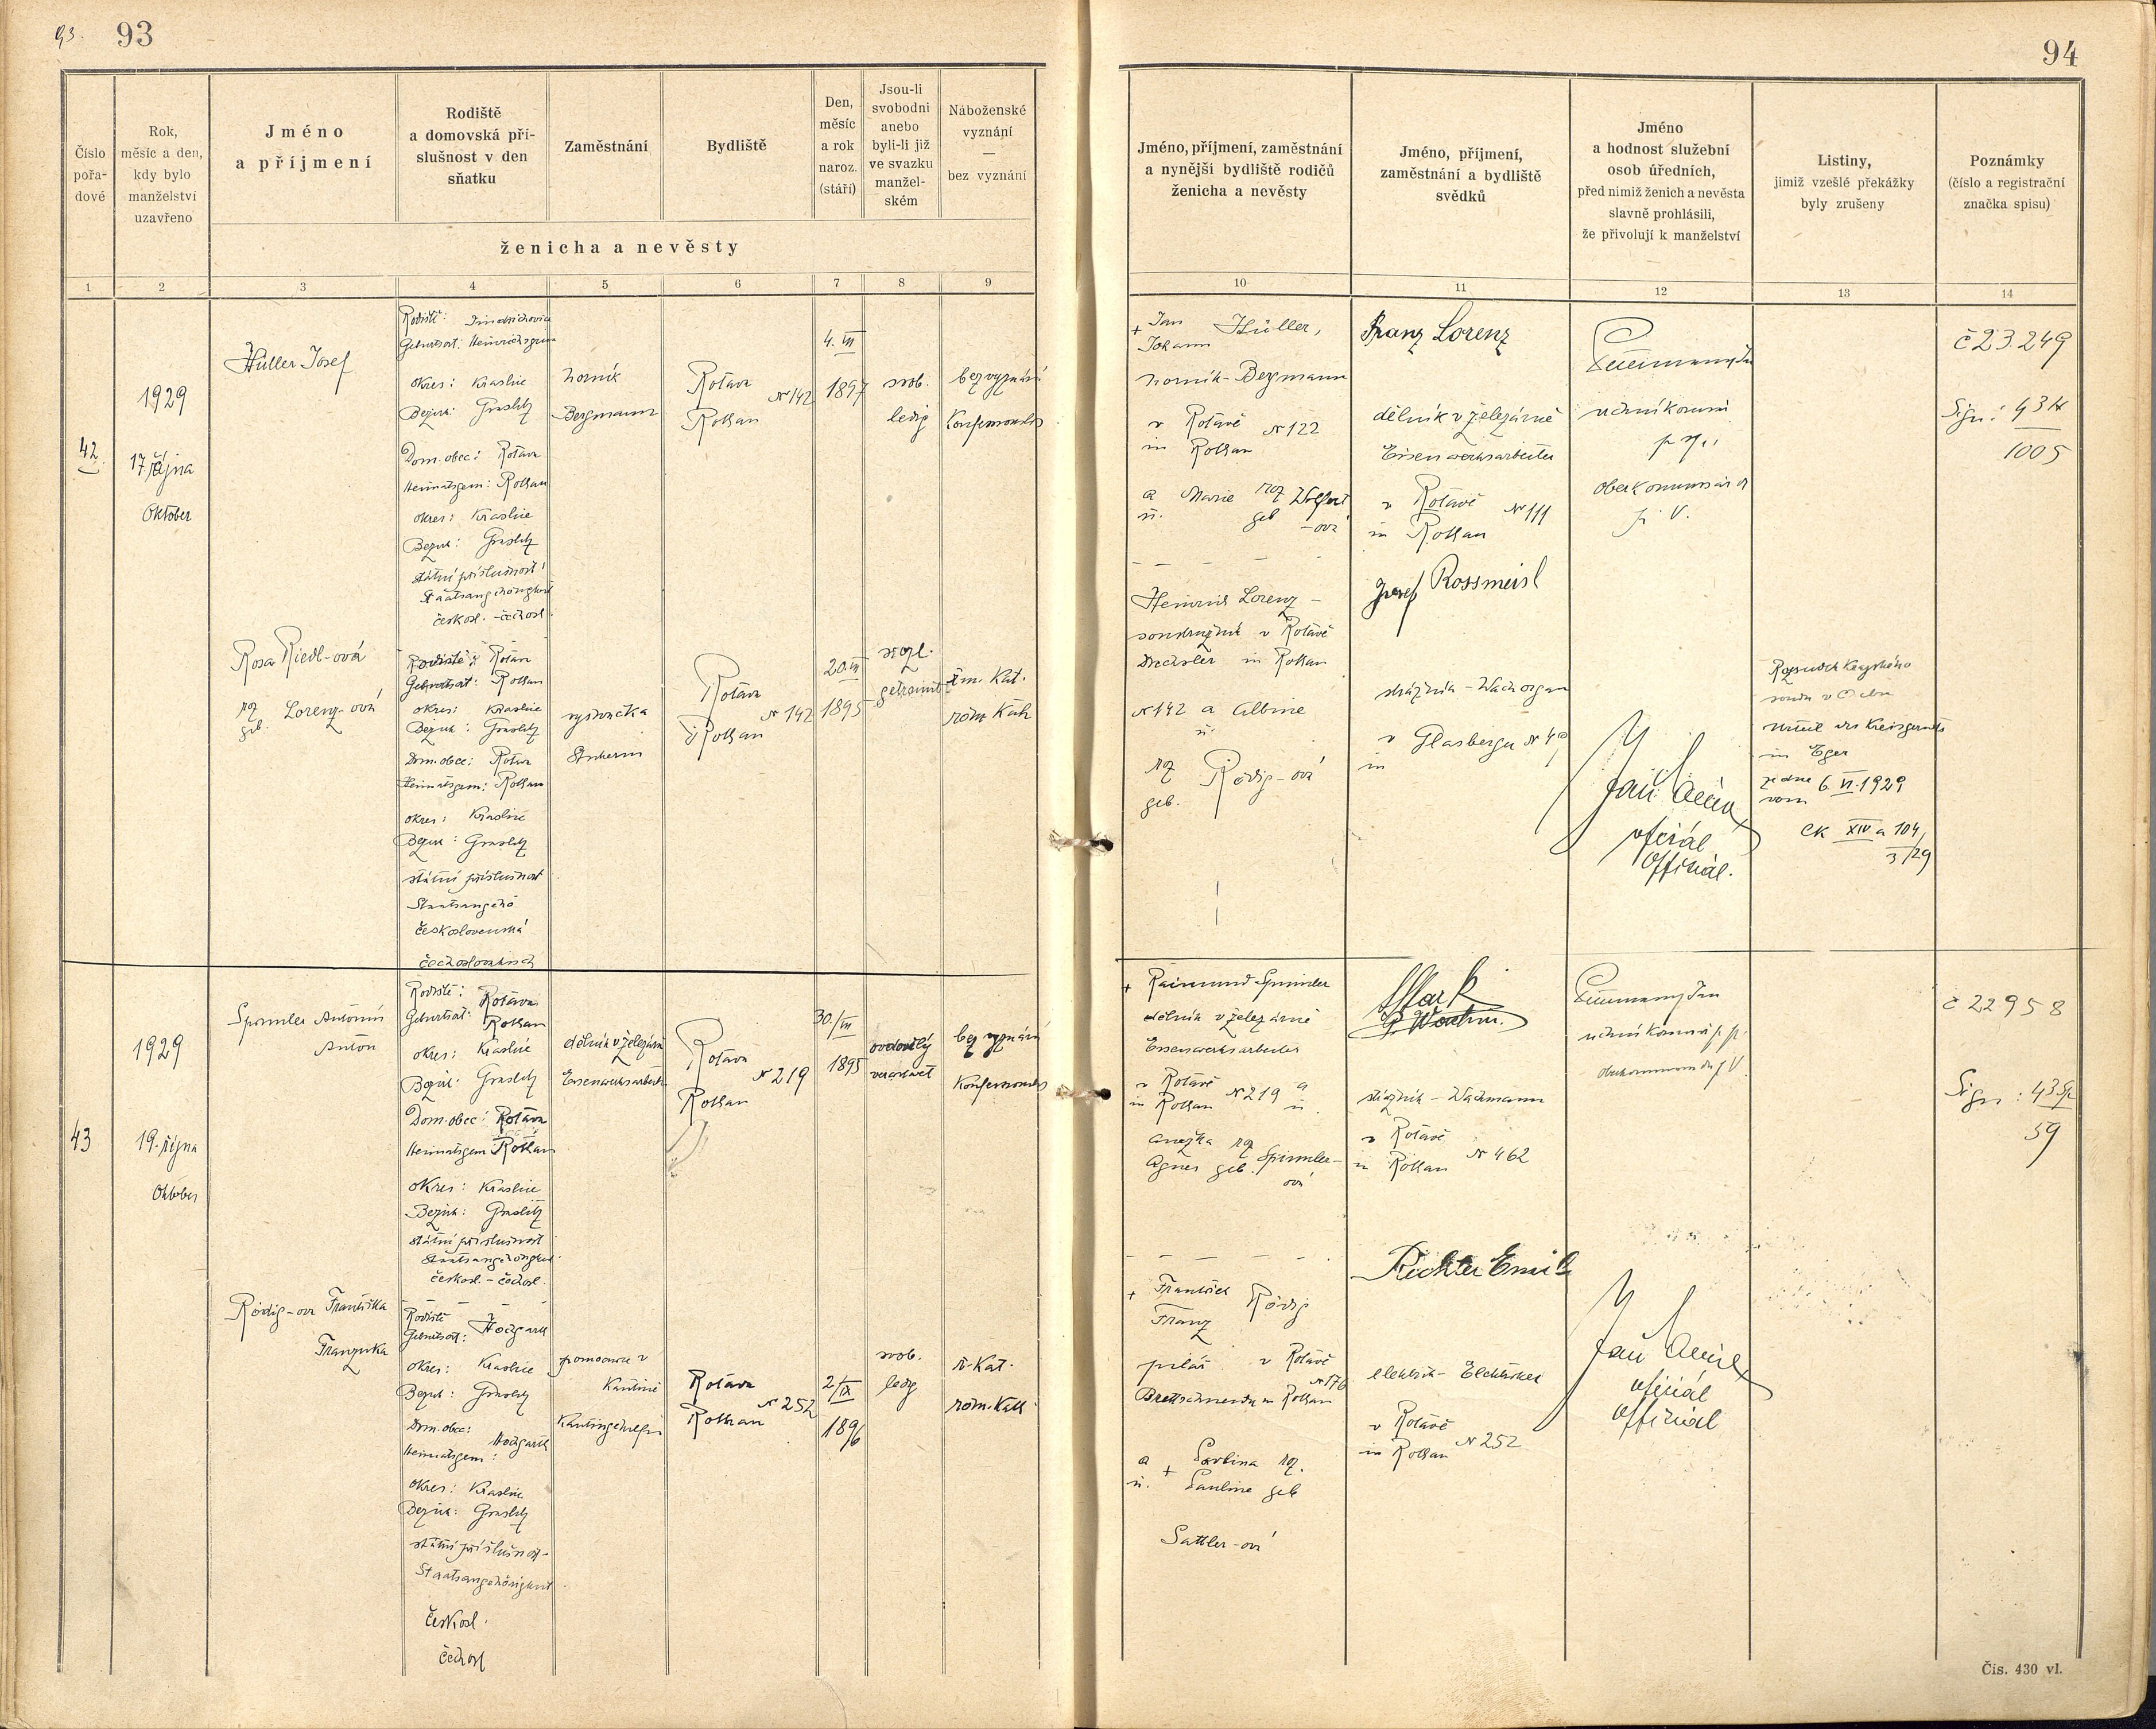 93.
93
Číslo
pořa-
dové
Rok,
měsíc a den,
kdy bylo
manželství
uzavřeno
Jméno
a příjmení
Rodiště
a domovská pří-
slušnost v den
sňatku
Zaměstnání
Bydliště
Den,
měsíc
a rok
naroz.
(stáří)
Jsou-li
svobodni
anebo
byli-li již
ve svazku
manžel-
ském
Náboženské
vyznání
—
bez vyznání
ženicha a nevěsty
1 2 3 4 5 6 7 8 9
42
1929
17. října
Oktober
Hüller Josef
Rodiště: Jindřichovice
Geburtsort: Heinrichsgrün
okres: Kraslice
Bezirk: Graslitz
Dom. obec: Rotava
Heimatsgem: Rothau
okres: Kraslice
Bezirk: Graslitz
státní příslušnost
Staatsangehörigkeit
českosl. - čechosl.
horník
Bergmann
Rotava
Nr 142
Rothau
4. III
1897
svob.
ledig
bez vyznání
Konfessionslos
Rosa Riedl-ová
roz
geb. Lorenz-ová
Rodiště: Rotava
Geburtsort: Rothau
okres: Kraslice
Bezirk: Graslitz
Dom. obec: Rotava
Heimatsgem: Rothau
okres: Kraslice
Bezirk: Graslitz
státní příslušnost
Staatsangehö
československá
čechoslovakisch
vyšívačka
Stickerin
Rotava
Nr 142
Rothau
1895
rozl.
getrennt
řím. Kat.
röm Kath
43
1929
19. října
Oktober
Spinnler Antonín
Anton
Rodiště: Rotava
Geburtsort: Rothau
okres: Kraslice
Bezirk: Graslitz
Dom. obec: Rotava
Heimatsgem Rothau
okres: Kraslice
Bezirk: Graslitz
státní příslušnost
Staatsangehörigkeit
českosl. - čechosl.
dělník v železárně
Eisenwerksarbeiter
Rotava
Nr 219
Rothau
1895
ovdovělý
verwitwet
bez vyznání
Konfessionslos
Rödig-ová Františka
Franziska
Rodiště
Geburtsort: Hochgarth
okres: Kraslice
Bezirk: Graslitz
Dom. obec:
Heimatsgem: Hochgarth
okres: Kraslice
Bezirk: Graslitz
státní příslušnost-
Staatsangehörigkeit
českosl.
čechosl
pomocnice v
Kantině
Kantingehilfin
Rotava
Nr 252
Rothau
2/IX
1896
svob.
ledig
ř. Kat.
röm. Kath
94
Jméno, příjmení, zaměstnání
a nynější bydliště rodičů
ženicha a nevěsty
Jméno, příjmení,
zaměstnání a bydliště
svědků
Jméno
a hodnost služební
osob úředních,
před nimiž ženich a nevěsta
slavně prohlásili,
že přivolují k manželství
Listiny,
jimiž vzešlé překážky
byly zrušeny
Poznámky
(číslo a registrační
značka spisu)
10 11 12 13 14
+ Jan
Johann Hüller,
horník - Bergmann
v Rotavě
in Rothau Nr 122
a Marie roz
u. geb
-ová
Heinrich Lorenz -
soustružník v Rotavě
Drechsler in Rothau
Nr 142 a Albine
u.
roz
geb. Rödig-ová
Franz Lorenz
dělník v železárně
Eisenwerksarbeiter
v Rotavě
in Rothau Nr 111
Josef Rossmeisl
strážník - Wachorgan
v
in Glasbergu
Oberkommissär
i. V.
oficiál
Offizial.
Rozsudek Krajského
soudu v Chebu
Urteil des Kreisgerichts
in Eger
ze dne
vom 6. VI. 1929
Ck XIV a 104/
3/29
č 23.249
Sign:
1005
+ Raimund Spinnler
dělník v železárně
Eisenwerksarbeiter
v Rotavě
in Rothau Nr 219 a
u.
Anežka roz
Agnes geb. Spinnler-
ová
+ František
Franz Rödig
pilař v Rotavě
Nr 176
Brettschneider in Rothau
a + Pavlina roz.
u. Pauline geb
Sattler-ová
strážník - Wachmann
v Rotavě
in Rothau Nr 462
Richter Emil
elektrik- Elektriker
v Rotavě
in Rothau Nr 252
oficiál
Offizial
č 22958
Sign: 43 Sp
59
Čís. 430 vl.